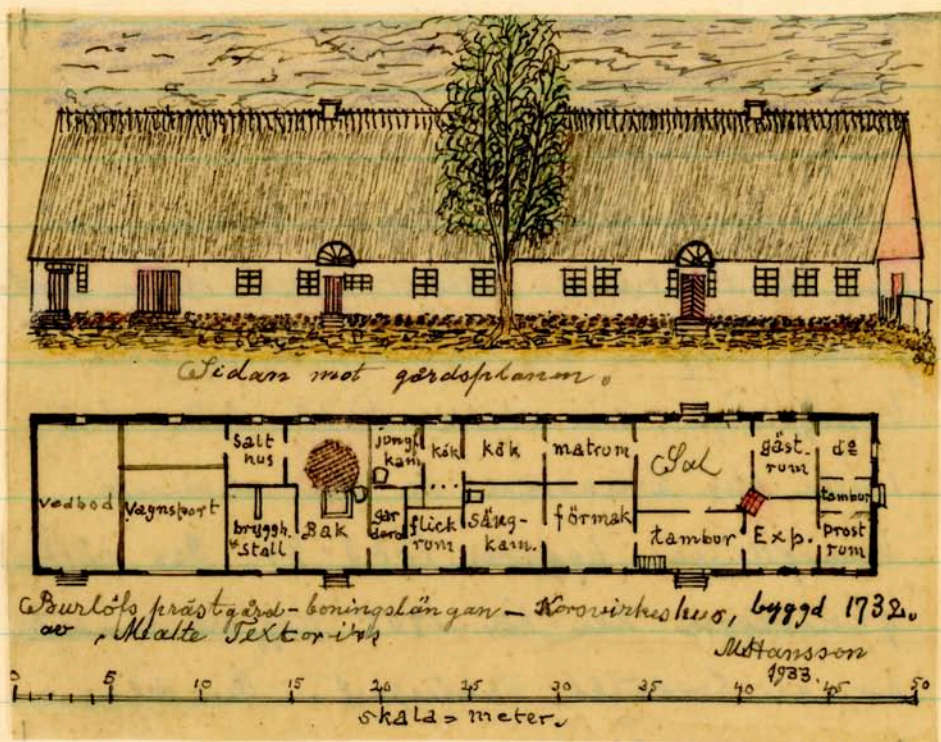 Sidan mot gårdsplanen.
vedbod
Vagnsport
Salt
hus
bryggh.
Stall
Bak
jungf
kam
gar
derob
kök
flick
rum
kök
Säng-
kam.
matrum
förmak
Sal
tambur
gäst-
rum
Exp.
do
tambur
prost
rum
Burlöfs prästgård - boningslängan - Korsvirkeshus, byggd 1732.
av Malte Textorius
MHansson
1933.
0 5 10 15 20 25 30 35 40 45 50
skala = meter.